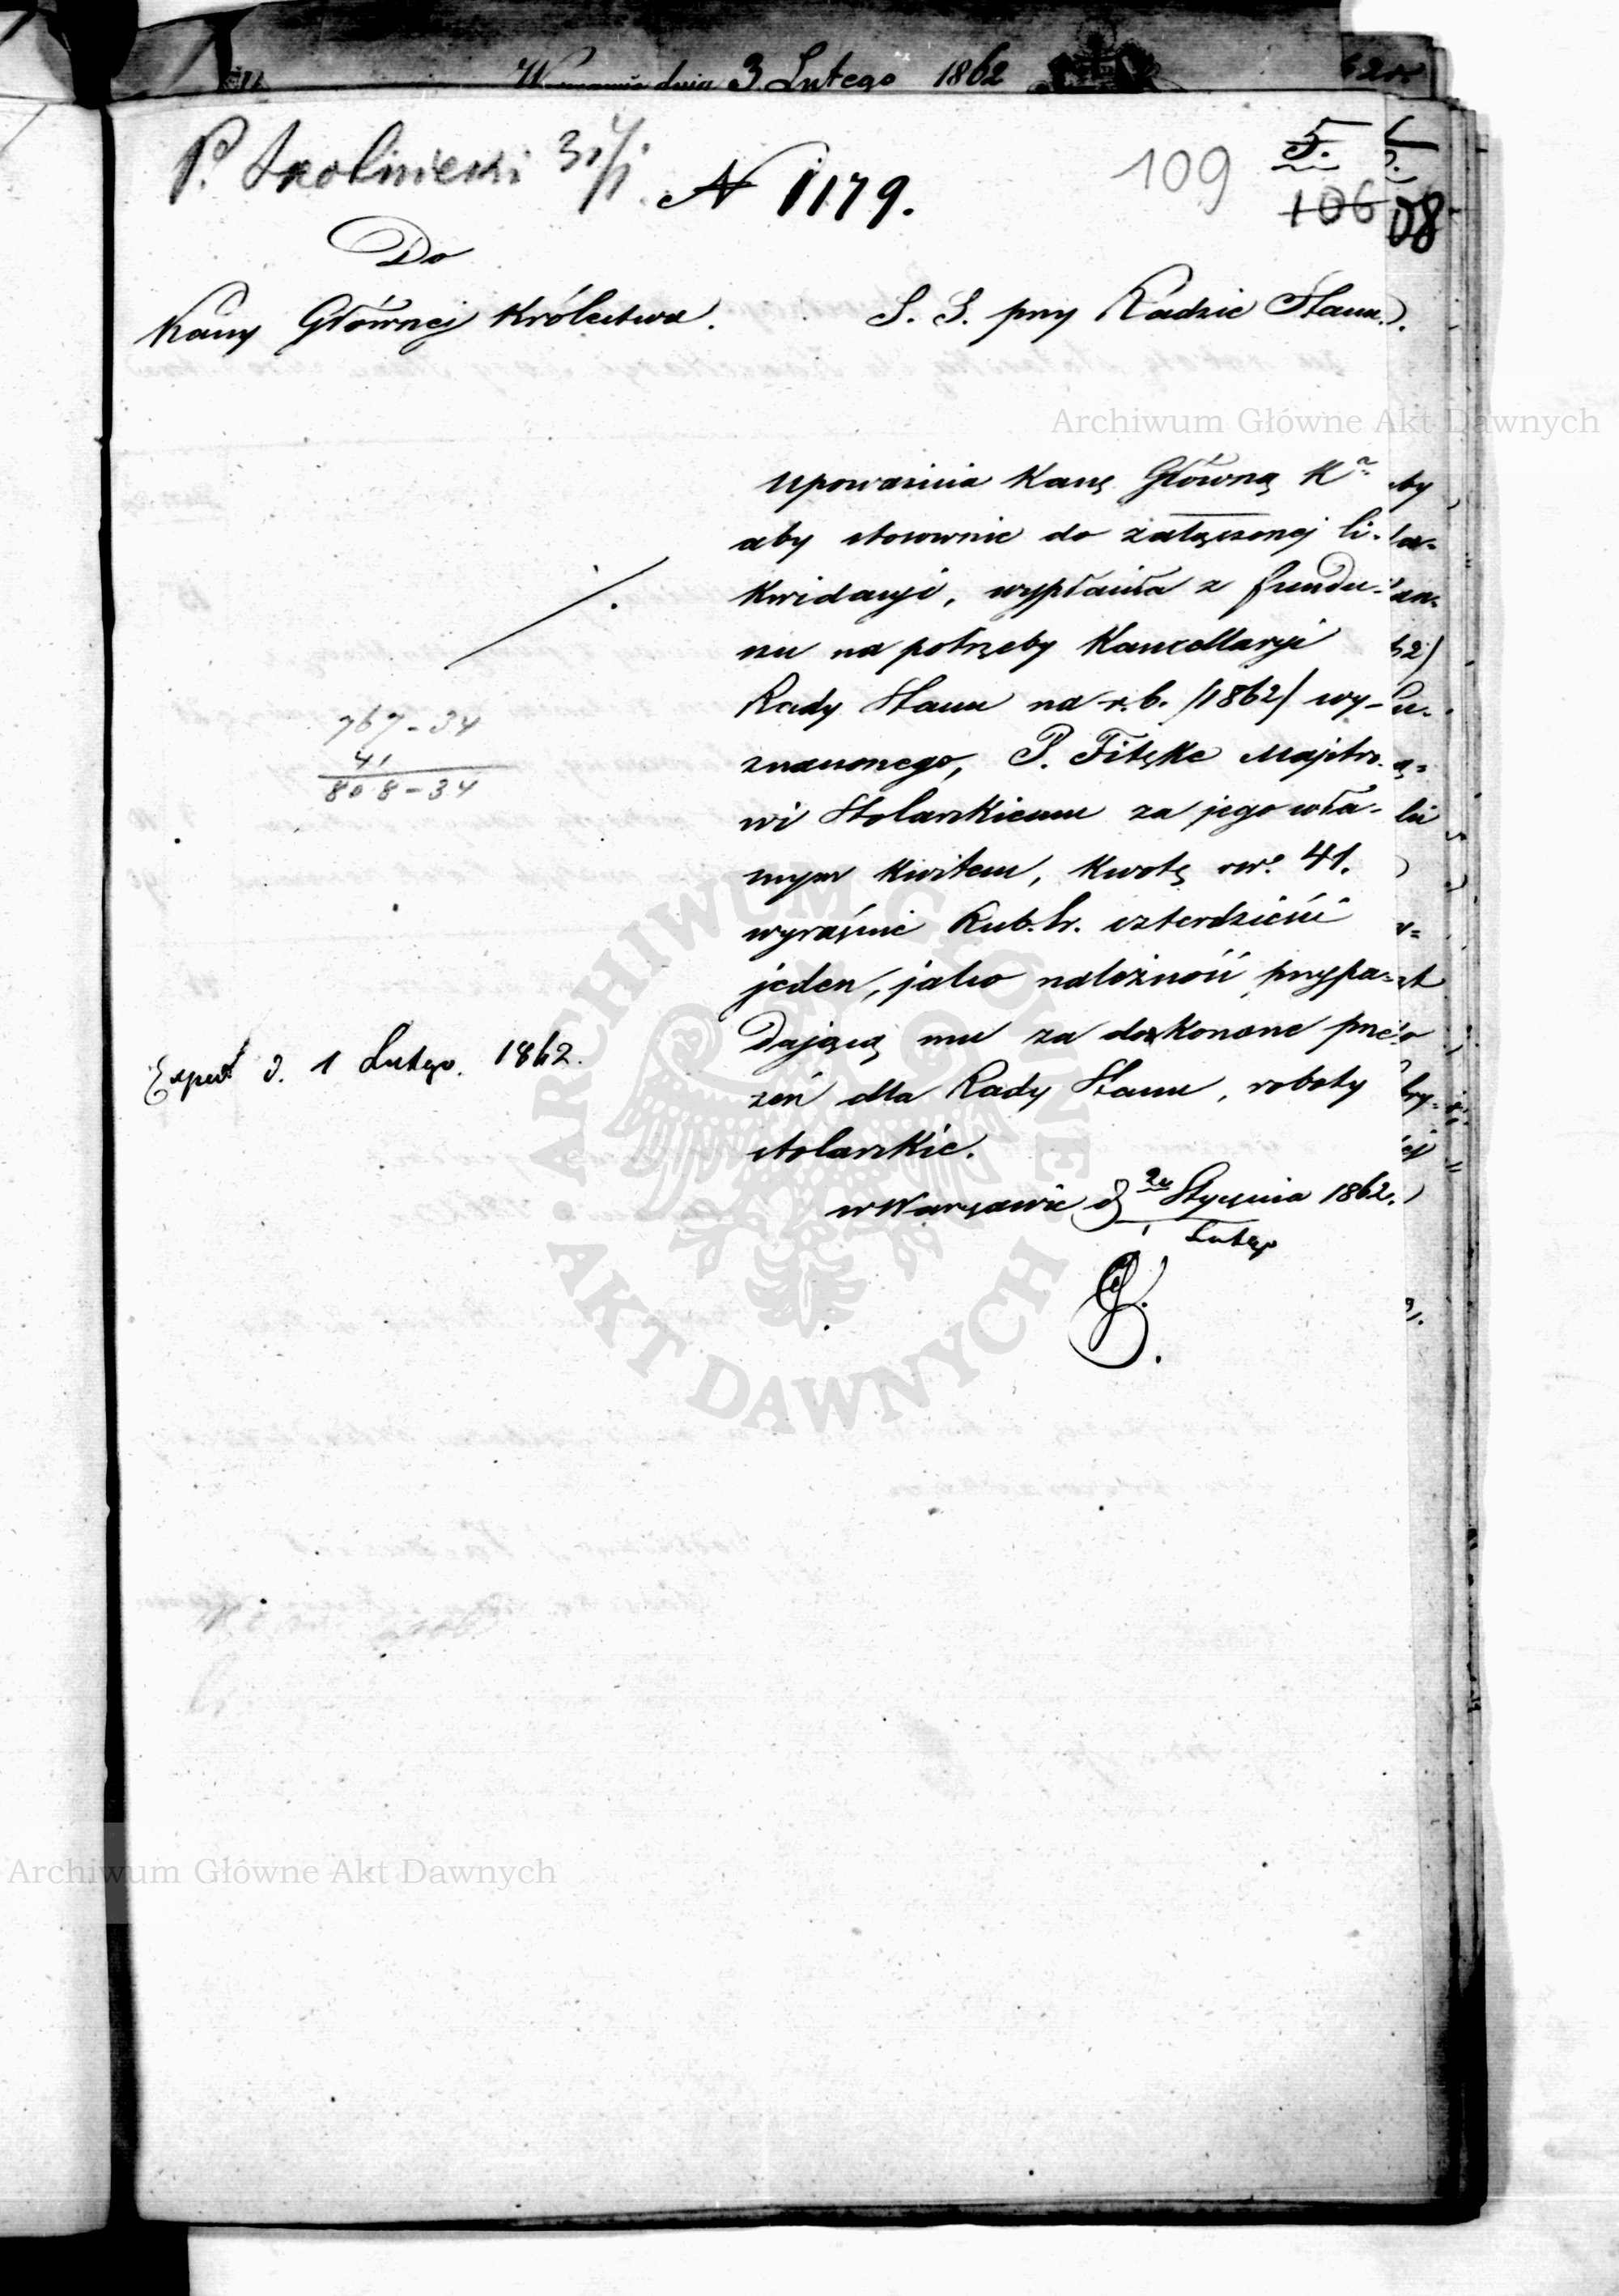 dnia 3 Lutego 1862
P. 31/1. N 1179.
109
5.
106
08
Do
Kassy Głównej Królestwa.
S. S. przy Radzie Stanu.
Archiwum Główne Akt Dawnych
Upoważnia Kassę Główną K
aby stosownie do załączonej li-
kwidacyi, wypłaciła z fundu-
szu na potrzeby Kancellaryi
Rady Stanu na r. b. /1862/ wy-
znaczonego, P. Fitzke Majstro-
wi Stolarskiemu za jego wła-
snym kwitem, kwotę rsr. 41.
wyraźnie Rub. sr. czterdzieści
jeden, jako należność przypa-
dającą mu za dokonane prze-
zeń dla Rady Stanu, roboty
stolarskie.
w Warszawie d Stycznia 1862.
1 Lutego
767-34
41
808-34
Exped. d. 1 Lutego. 1862.
ARCHIWUM GŁÓWNE AKT DAWNYCH
Archiwum Główne Akt Dawnych